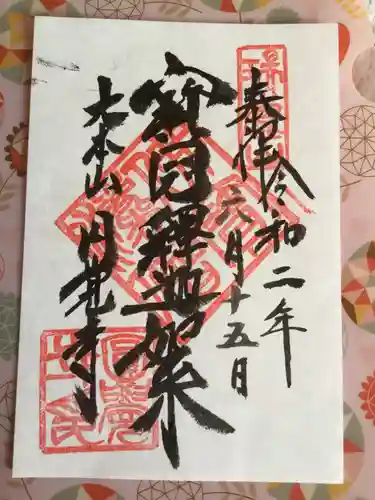 奉拝 令和二年
六月十五日
寶冠釋迦如来
大本山 円覚寺